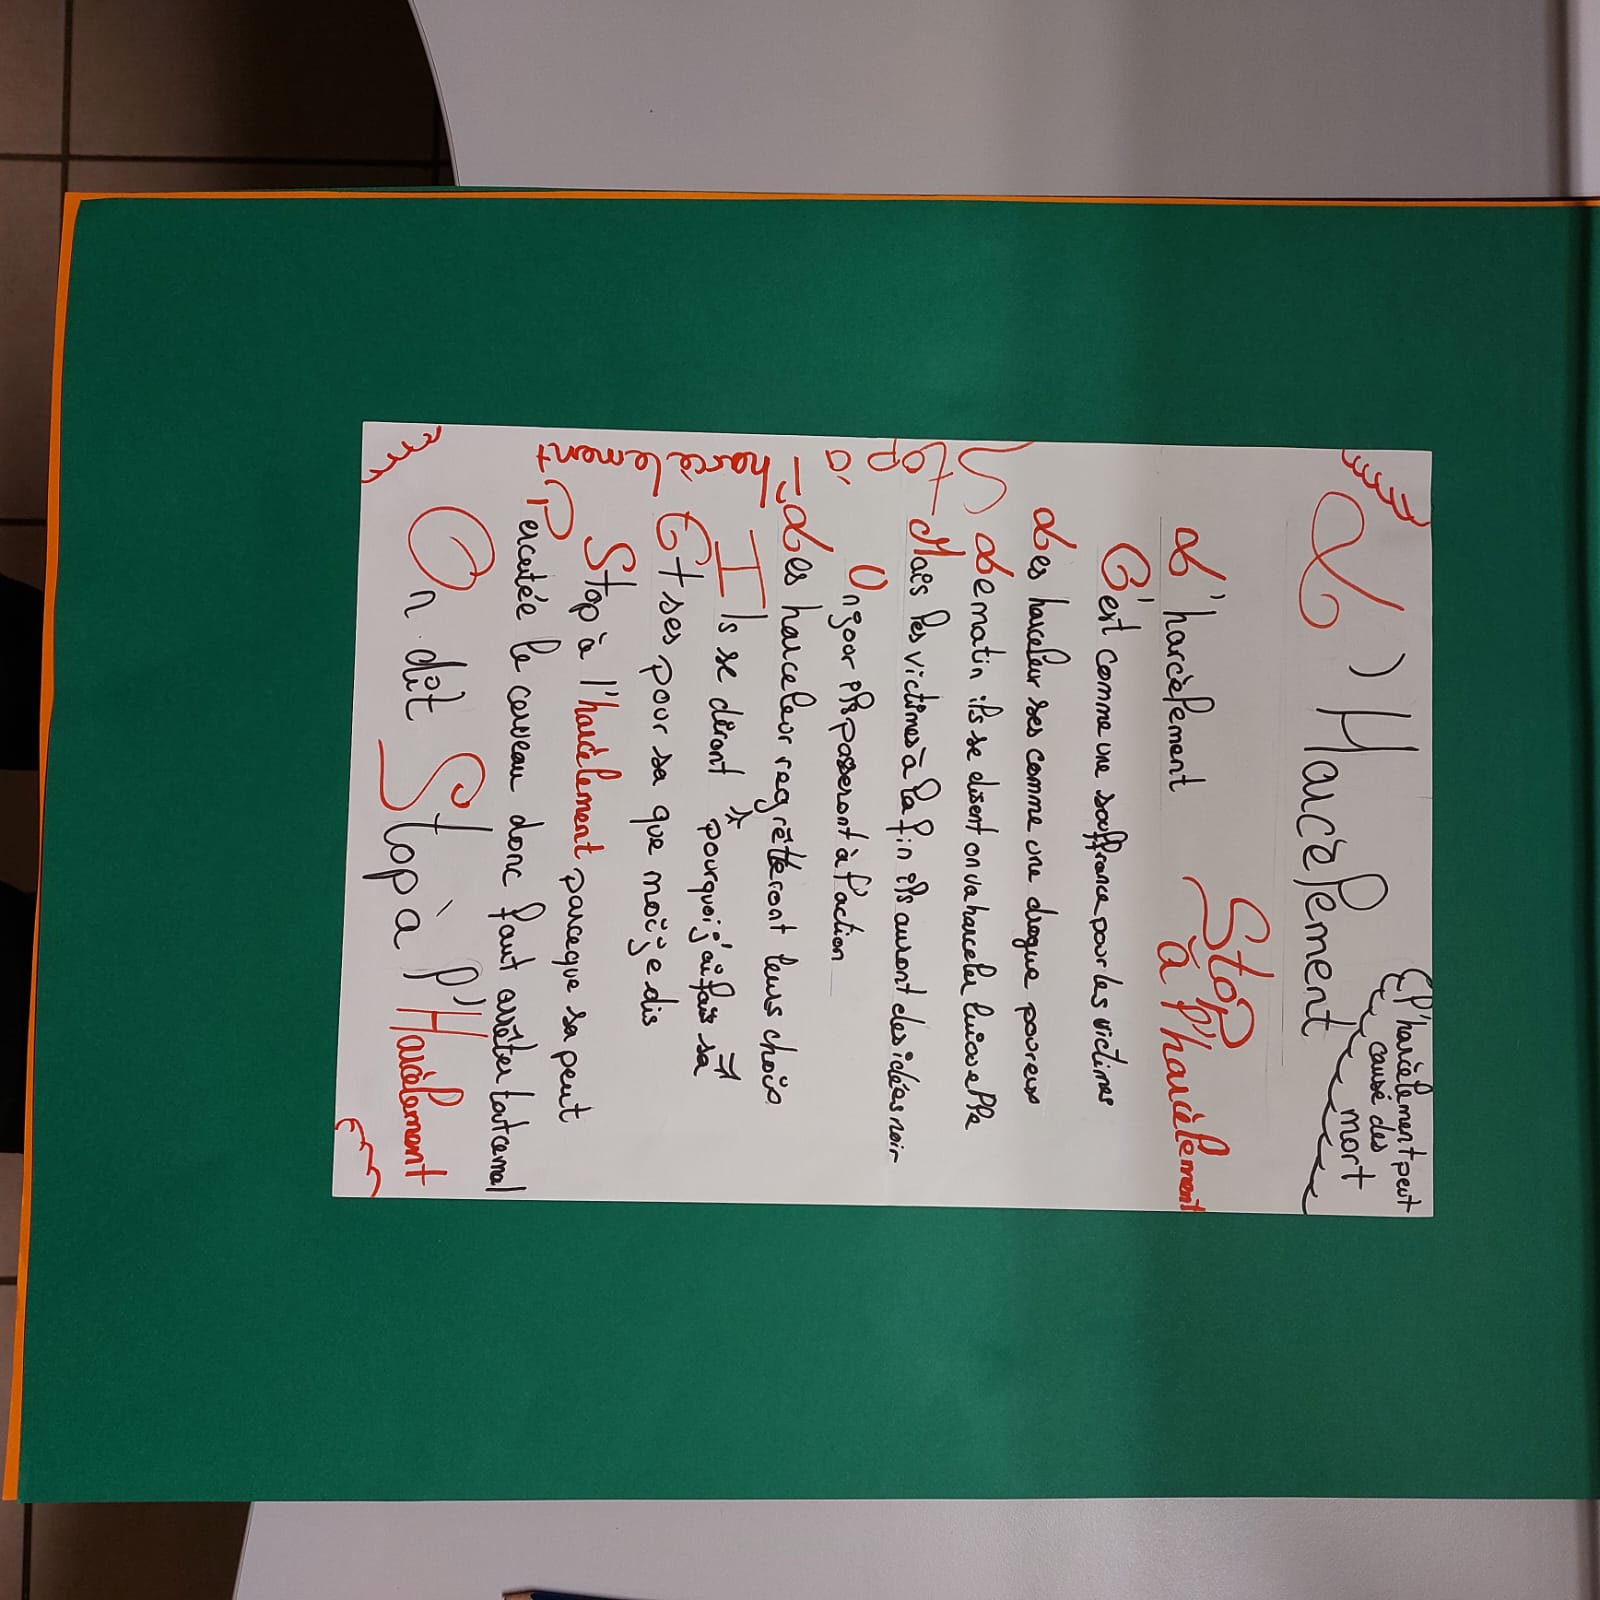 L'Harcèlement
L'harcèlement peut
causé des
mort
Stop
à l'harcèlement
L'harcèlement
C'est comme une souffrance pour les victimes
Les harceleur ses comme une drogue pour eux
Le matin ils se disent on va harceler lui ou elle
Mais les victimes à la fin ils auront des idées noir
Un jour ils passeront à l'action
Les harceleur regrèteront leurs choix
Ils se diront "pourquoi j'ai fais sa"
Et ses pour sa que moi je dis
Stop à l'harcèlement parce que sa peut
Percutée le cerveau donc faut arrêter tout ce mal
On dit Stop à l'Harcèlement
Stop à l'harcèlement